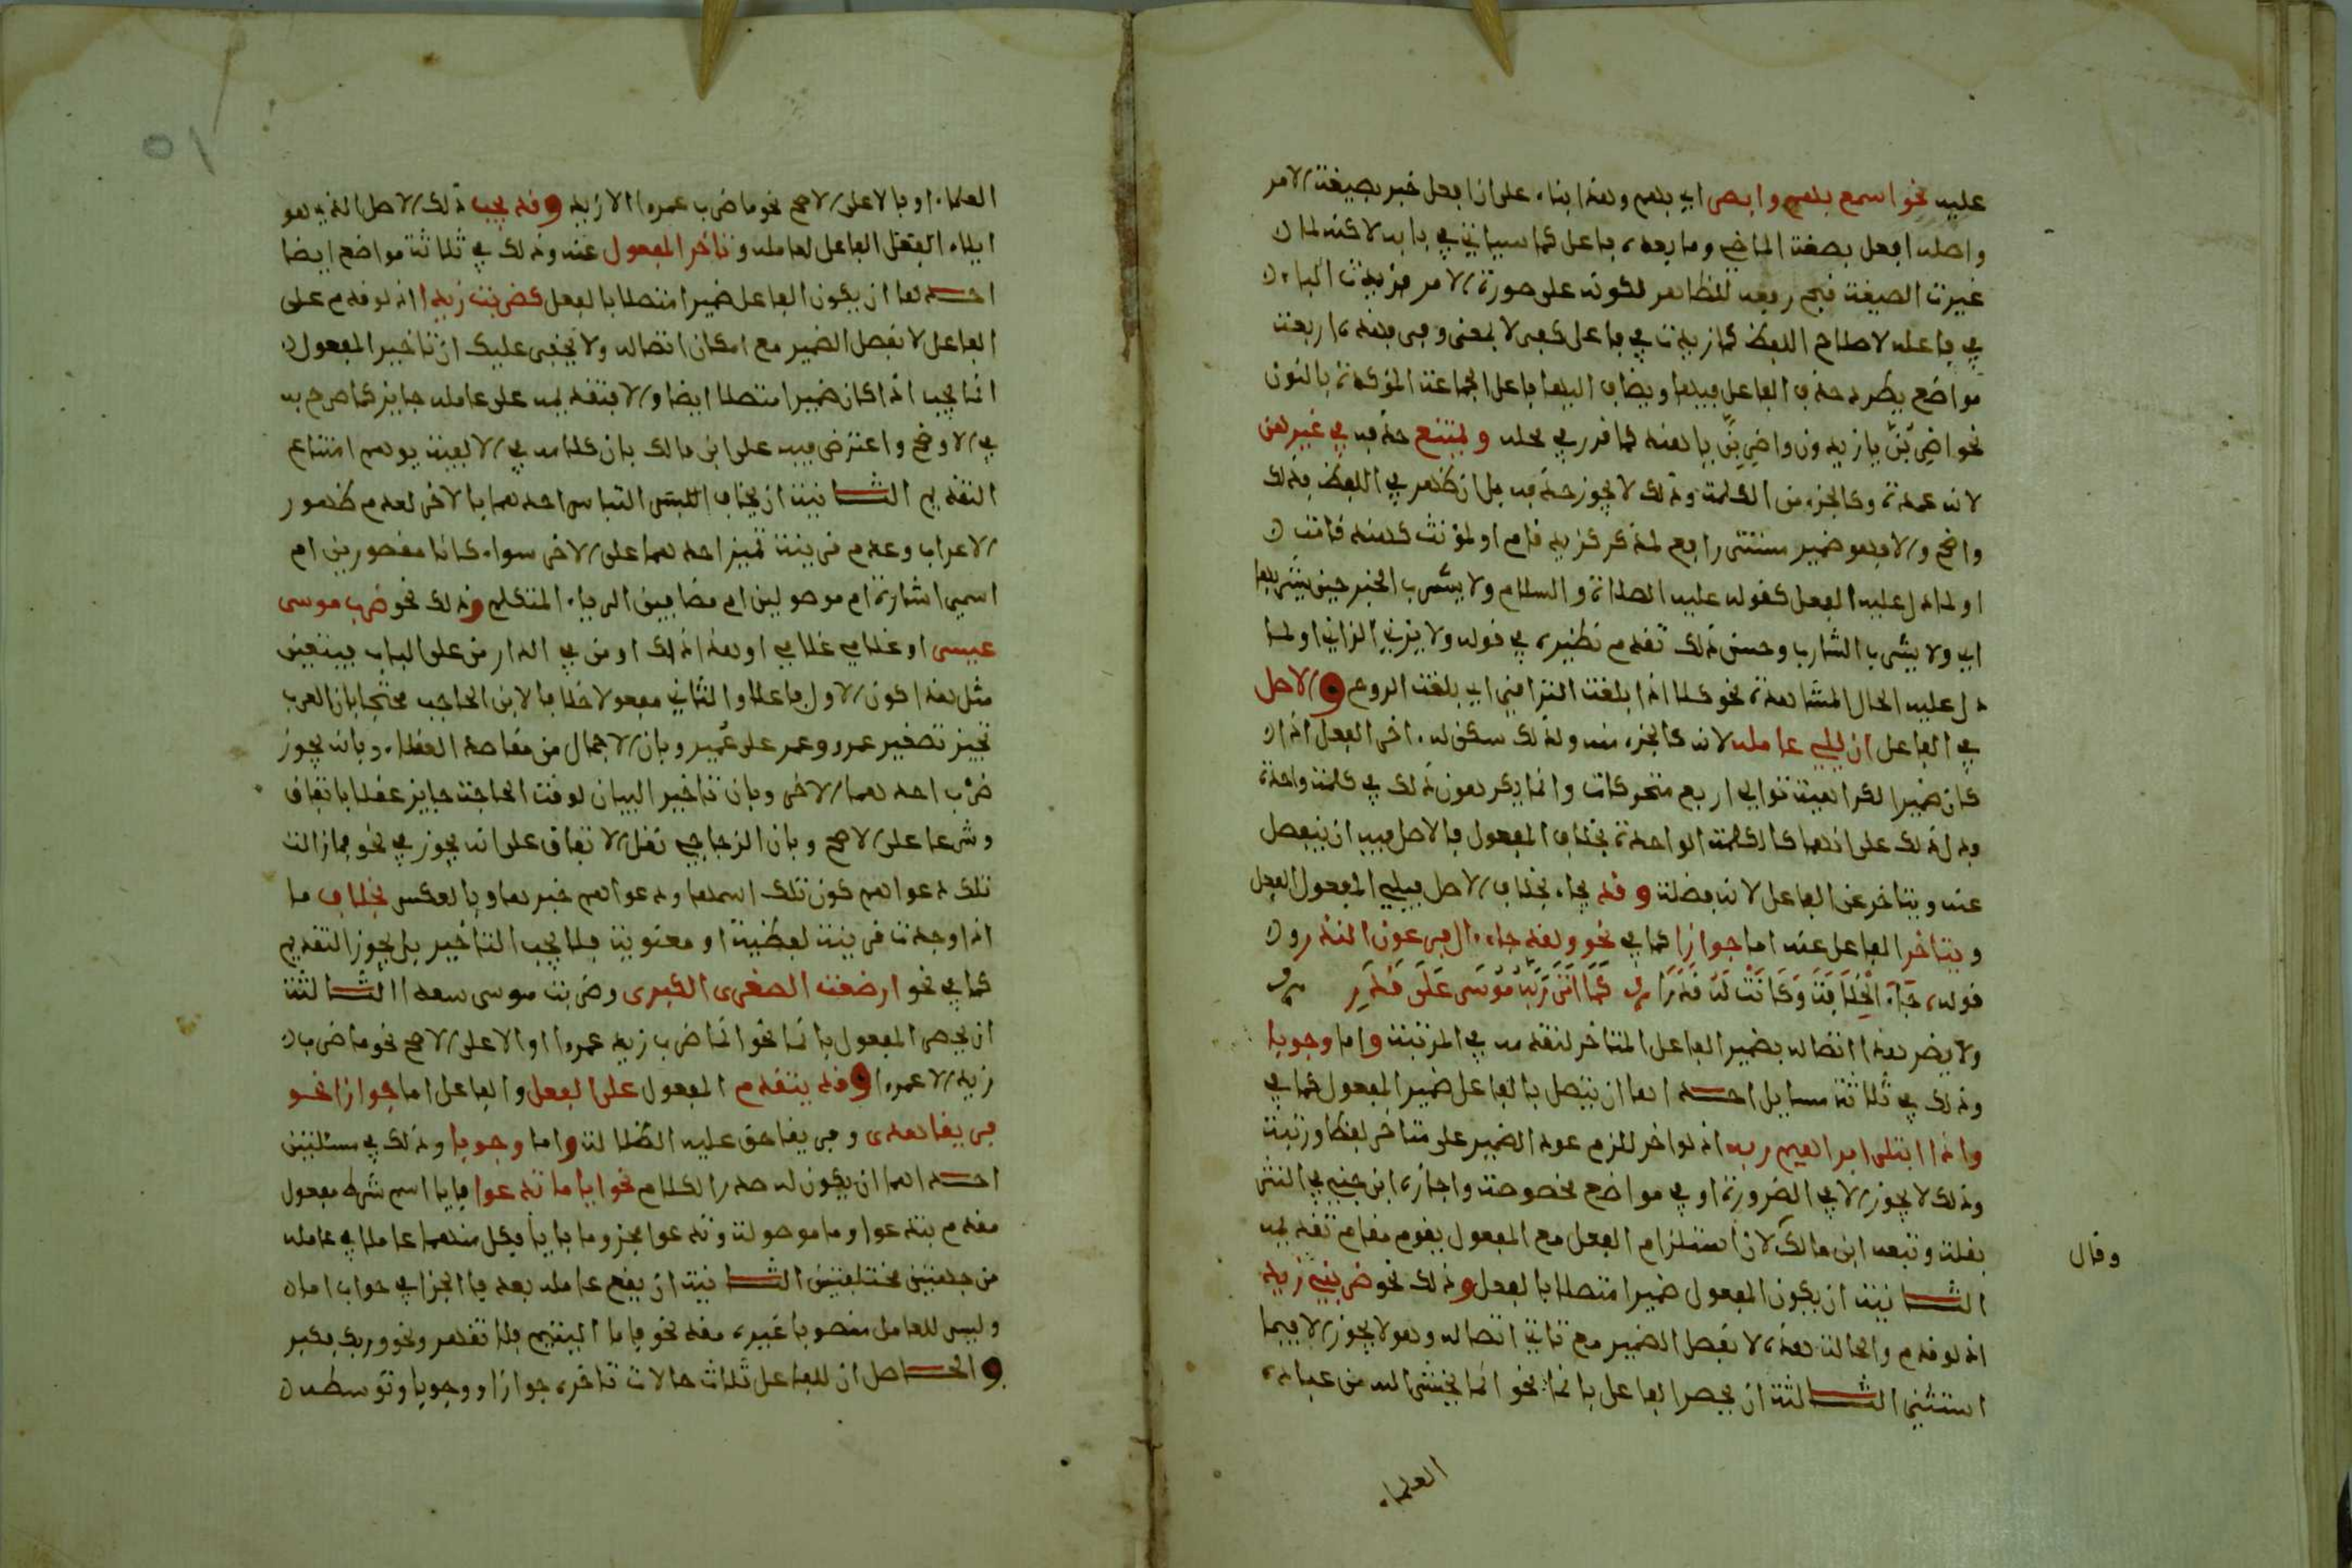 عليه نحو اسمع بهم وابصر اي بهم وهذا بناء على ان افعل خبر بصيغة الامر
واصله افعل بصيغة الماضي وما بعده فاعل كما سياتي في بابه لاكنه لما
غيرت الصيغة قبح رفعه للظاهر لكونه على صورة الامر فزيدت الباء
في فاعله لاصلاح اللفظ كما زيدت في فاعل كفى لا لمعنى وفي هذه اربعة
مواضع يطرد حذف الفاعل فيها ويضاف اليها فاعل الجماعة المؤكد بالنون
نحو اضربن يا زيدون واضربن يا هند كما قدر في محله ويمتنع حذفه في غيرهن
لانه عمدة وكالجزء من الكلمة وذلك لا يجوز حذفه بل ان ظهر في اللفظ فذلك
واضح والا فهو ضمير مستتر راجع لمذكر كزيد قام او لمؤنث كهند قامت
او لما دل عليه الفعل كقوله عليه الصلاة والسلام ولا يشرب الخمر حين يشربها
اي ولا يشرب الشارب وحسن ذلك تقدم نظيره في قوله ولا يزني الزاني او لما
دل عليه الحال المشاهدة نحو كلا اذا بلغت التراقي اي بلغت الروح والاصل
في الفاعل ان يلي عامله لانه كالجزء منه ولذلك سكن له اخر الفعل اذا
كان ضميرا لكراهية توالي اربع متحركات وانما يكرهون ذلك في كلمة واحدة
فدل ذلك على انهما كالكلمة الواحدة بخلاف المفعول فالاصل فيه ان ينفصل
عنه ويتاخر عن الفاعل لانه فضلة وقد يجاء بخلاف الاصل فيلي المفعول الفعل
ويتاخر الفاعل عنه اما جوازا كما في نحو ولقد جاء ال فرعون النذر و
قوله جَاءَ الْخِلَافَةَ وَكَانَتْ لَهُ قَدَرًا كَمَا اَتَى رَبَّهُ مُوسَى عَلَى قَدَرِ
ولا يضر هذا اتصاله بضمير الفاعل المتاخر لتقدمه في المرتبة واما وجوبا
وذلك في ثلاثة مسايل احداها ان يتصل بالفاعل ضمير المفعول كما في
واذا ابتلى ابراهيم ربه اذ لو اخر للزم عود الضمير على متاخر لفظا ورتبة
وذلك لا يجوز الا في الضرورة او في مواضع مخصوصة واجازه ابن جني في النثر
بقلة وتبعه ابن مالك لان استلزام الفعل مع المفعول يقوم مقام تقديمه
الثانية ان يكون المفعول ضميرا متصلا بالفعل وذلك نحو ضربني زيد
اذ لو قدم والحالة هذه لانفصل الضمير مع تاتي اتصاله وهو لا يجوز الا فيما
استثني الثالثة ان يحصر الفاعل بانما نحو انما يخشى الله من عباده
وقال
العلماء
٥١
العلماء او بالا على الاصح نحو ما ضرب عمرا الا زيد وقد يجب ذلك الاصل الذي هو
ايلاء الفاعل لعامله وتاخر المفعول عنه وذلك في ثلاثة مواضع ايضا
احدها ان يكون الفاعل ضميرا متصلا بالفعل كضربت زيدا اذ لو قدم على
الفاعل لانفصل الضمير مع امكان اتصاله ولا يخفى عليك ان تاخير المفعول
انما يجب اذا كان ضميرا متصلا ايضا والا فتقديمه على عامله جايز كما صرح به
في الاوضح واعترض فيه على ابن مالك بان كلامه في الالفية يوهم امتناع
التقديم الثانية ان يخاف اللبس التباس احدهما بالاخر لعدم ظهور
الاعراب وعدم قرينة تميز احدهما على الاخر سواء كانا مقصورين ام
اسمي اشارة ام موصولين ام مضافين الى ياء المتكلم وذلك نحو ضرب موسى
عيسى او غلامي غلامي او هذا ذاك او من في الدار من على الباب فيتعين
مثل هذا كون الاول فاعلا والثاني مفعولا خلافا لابن الحاجب محتجا بان العرب
تجيز تصغير عمرو وعمر على عمير وبان الاجمال من مقاصد العقلاء وبانه يجوز
ضرب احدهما الاخر وبان تاخير البيان لوقت الحاجة جايز عقلا باتفاق
وشرعا على الاصح وبان الزجاجي نقل الاتفاق على انه يجوز في نحو فما زالت
تلك دعواهم كون تلك اسمها ودعواهم خبرها وبالعكس بخلاف ما
اذا وجدت قرينة لفظية او معنوية فلا يجب التاخير بل يجوز التقديم
كما في نحو ارضعت الصغرى الكبرى وضربت موسى سعدا الثالثة
ان يحصر المفعول بانما نحو انما ضرب زيد عمرا او الا على الاصح نحو ما ضرب
زيد الا عمرا وقد يتقدم المفعول على الفعل والفاعل اما جوازا نحو
فريقا هدى وفريقا حق عليه الضلالة واما وجوبا وذلك في مسئلتين
احداهما ان يكون له صدر الكلام نحو ايا ما تدعوا فايا اسم شرط مفعول
مقدم بتدعوا وما موصولة وتدعوا مجزوما بايا فكل منهما عامل في عامله
من جهتين مختلفتين الثانية ان يقع عامله بعد فا الجزا في جواب اما
وليس للعامل منصوبا غيره مقدم نحو فاما اليتيم فلا تقهر ونحو وربك فكبر
والحاصل ان للفاعل ثلاث حالات تاخره جوازا ووجوبا وتوسطه